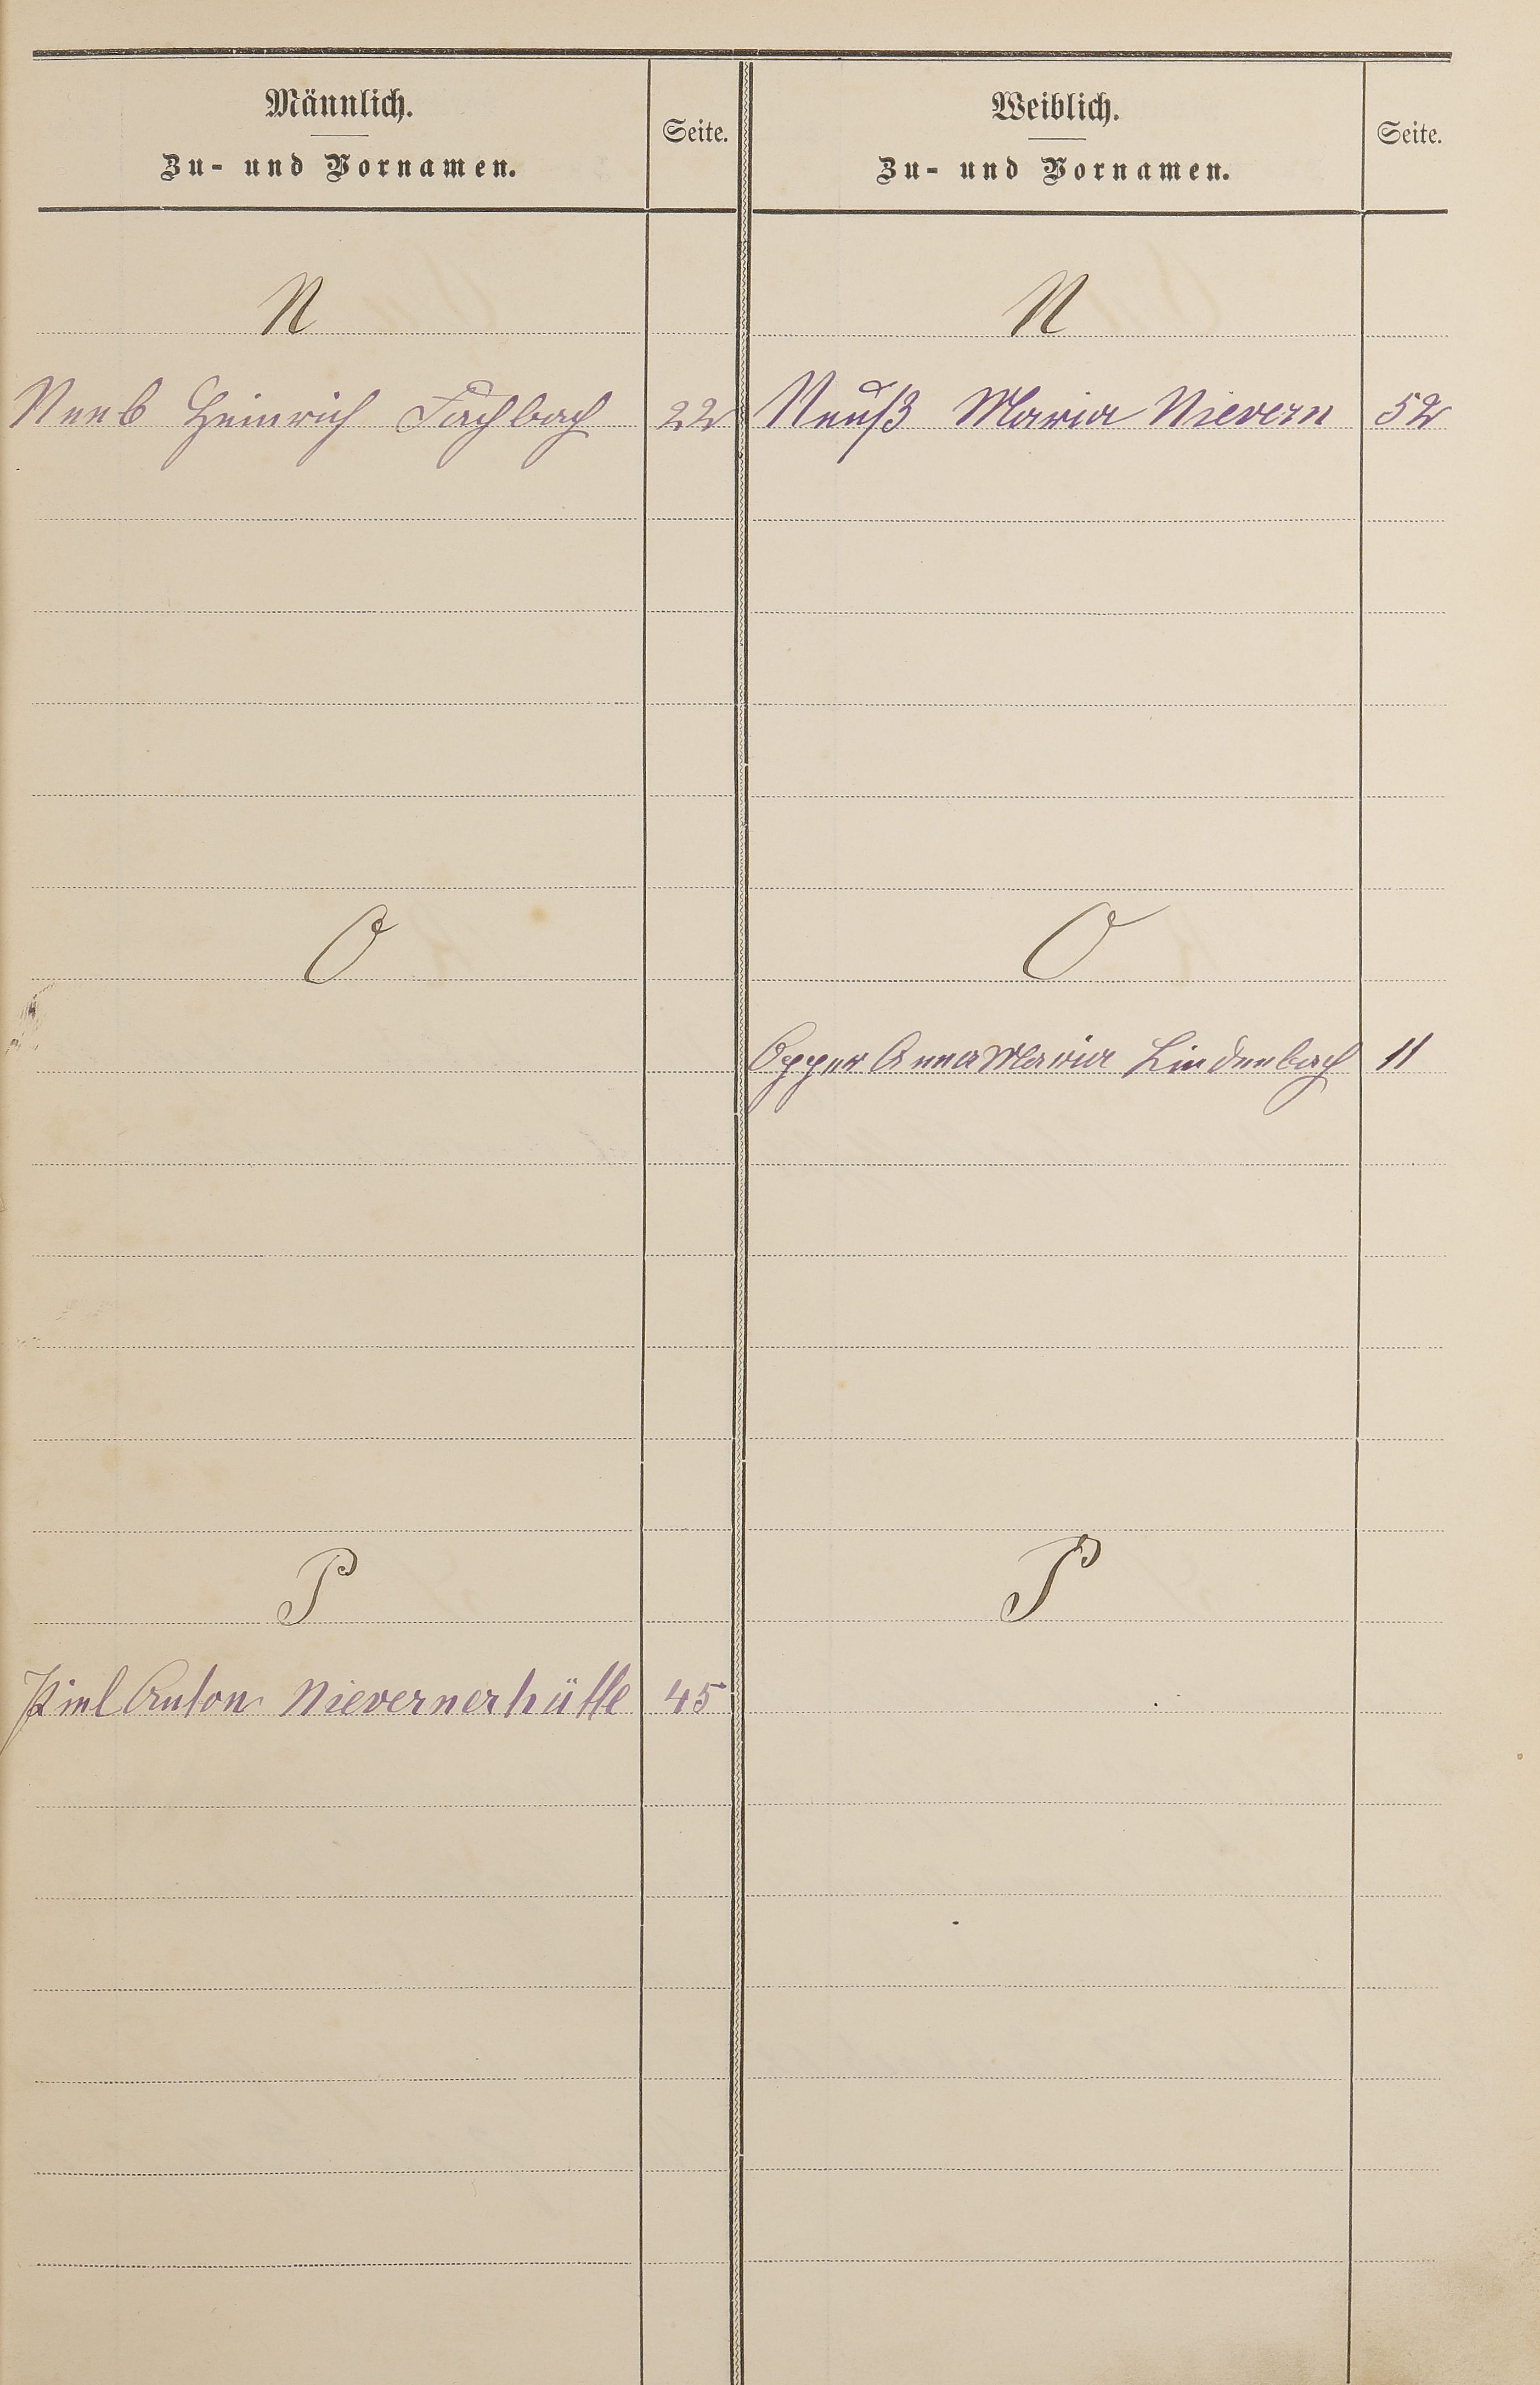 Männlich.
Zu- und Vornamen.
Seite.
Weiblich.
Zu- und Vornamen.
Seite.
N
N
Neeb Heinrich Fachbach 22
Neuß Maria Nievern 52
O
O
Opper Anna Maria Lindenbach 11
P
P
Piel Anton Nievernerhütte 45